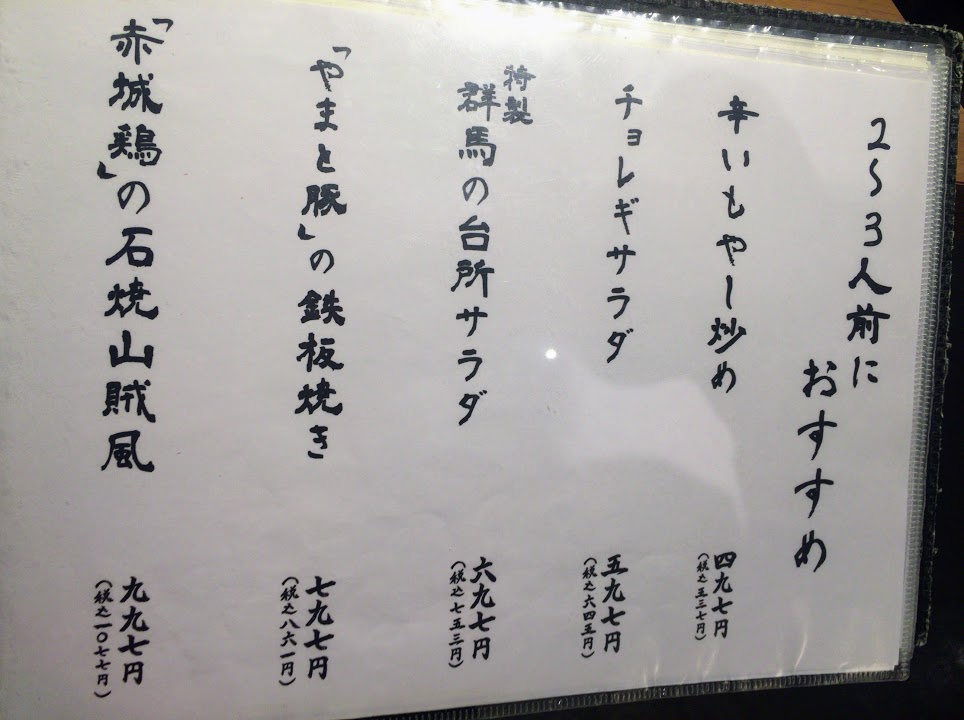 2〜3人前に
おすすめ
辛いもやしー炒め
四九七円
(税込五三七円)
チョレギサラダ
五九七円
(税込六四五円)
特製
群馬の台所サラダ
六九七円
(税込七五三円)
「やまと豚」の鉄板焼き
七九七円
(税込八六一円)
「赤城鶏」の石焼山賊風
九九七円
(税込一〇七七円)